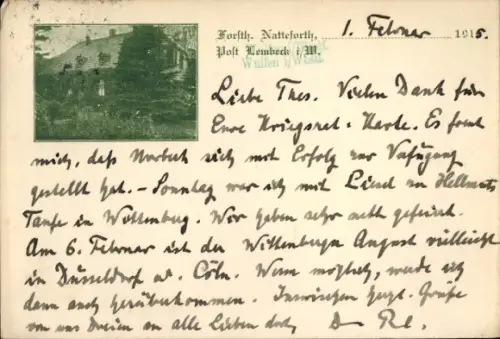 Forsth. Natteforth,
Post Lembeck i/W.
1. Februar 1915.
Wulfen i/Westf.
Liebe Thes. Vielen Dank für
Eure Kriegsrat-Karte. Es freut
mich, daß Norbert sich mit Erfolg zur Verfügung
gestellt hat. – Sonntag war ich mit Liesel zu Hellmuts
Taufe in Wittenberg. Wir haben sehr nett gefeiert.
Am 6. Februar ist der Wittenberger August vielleicht
in Düsseldorf od. Cöln. Wenn möglich, werde ich
dann auch herüberkommen. Inzwischen herzl. Grüße
von uns Dreien an alle Lieben dort